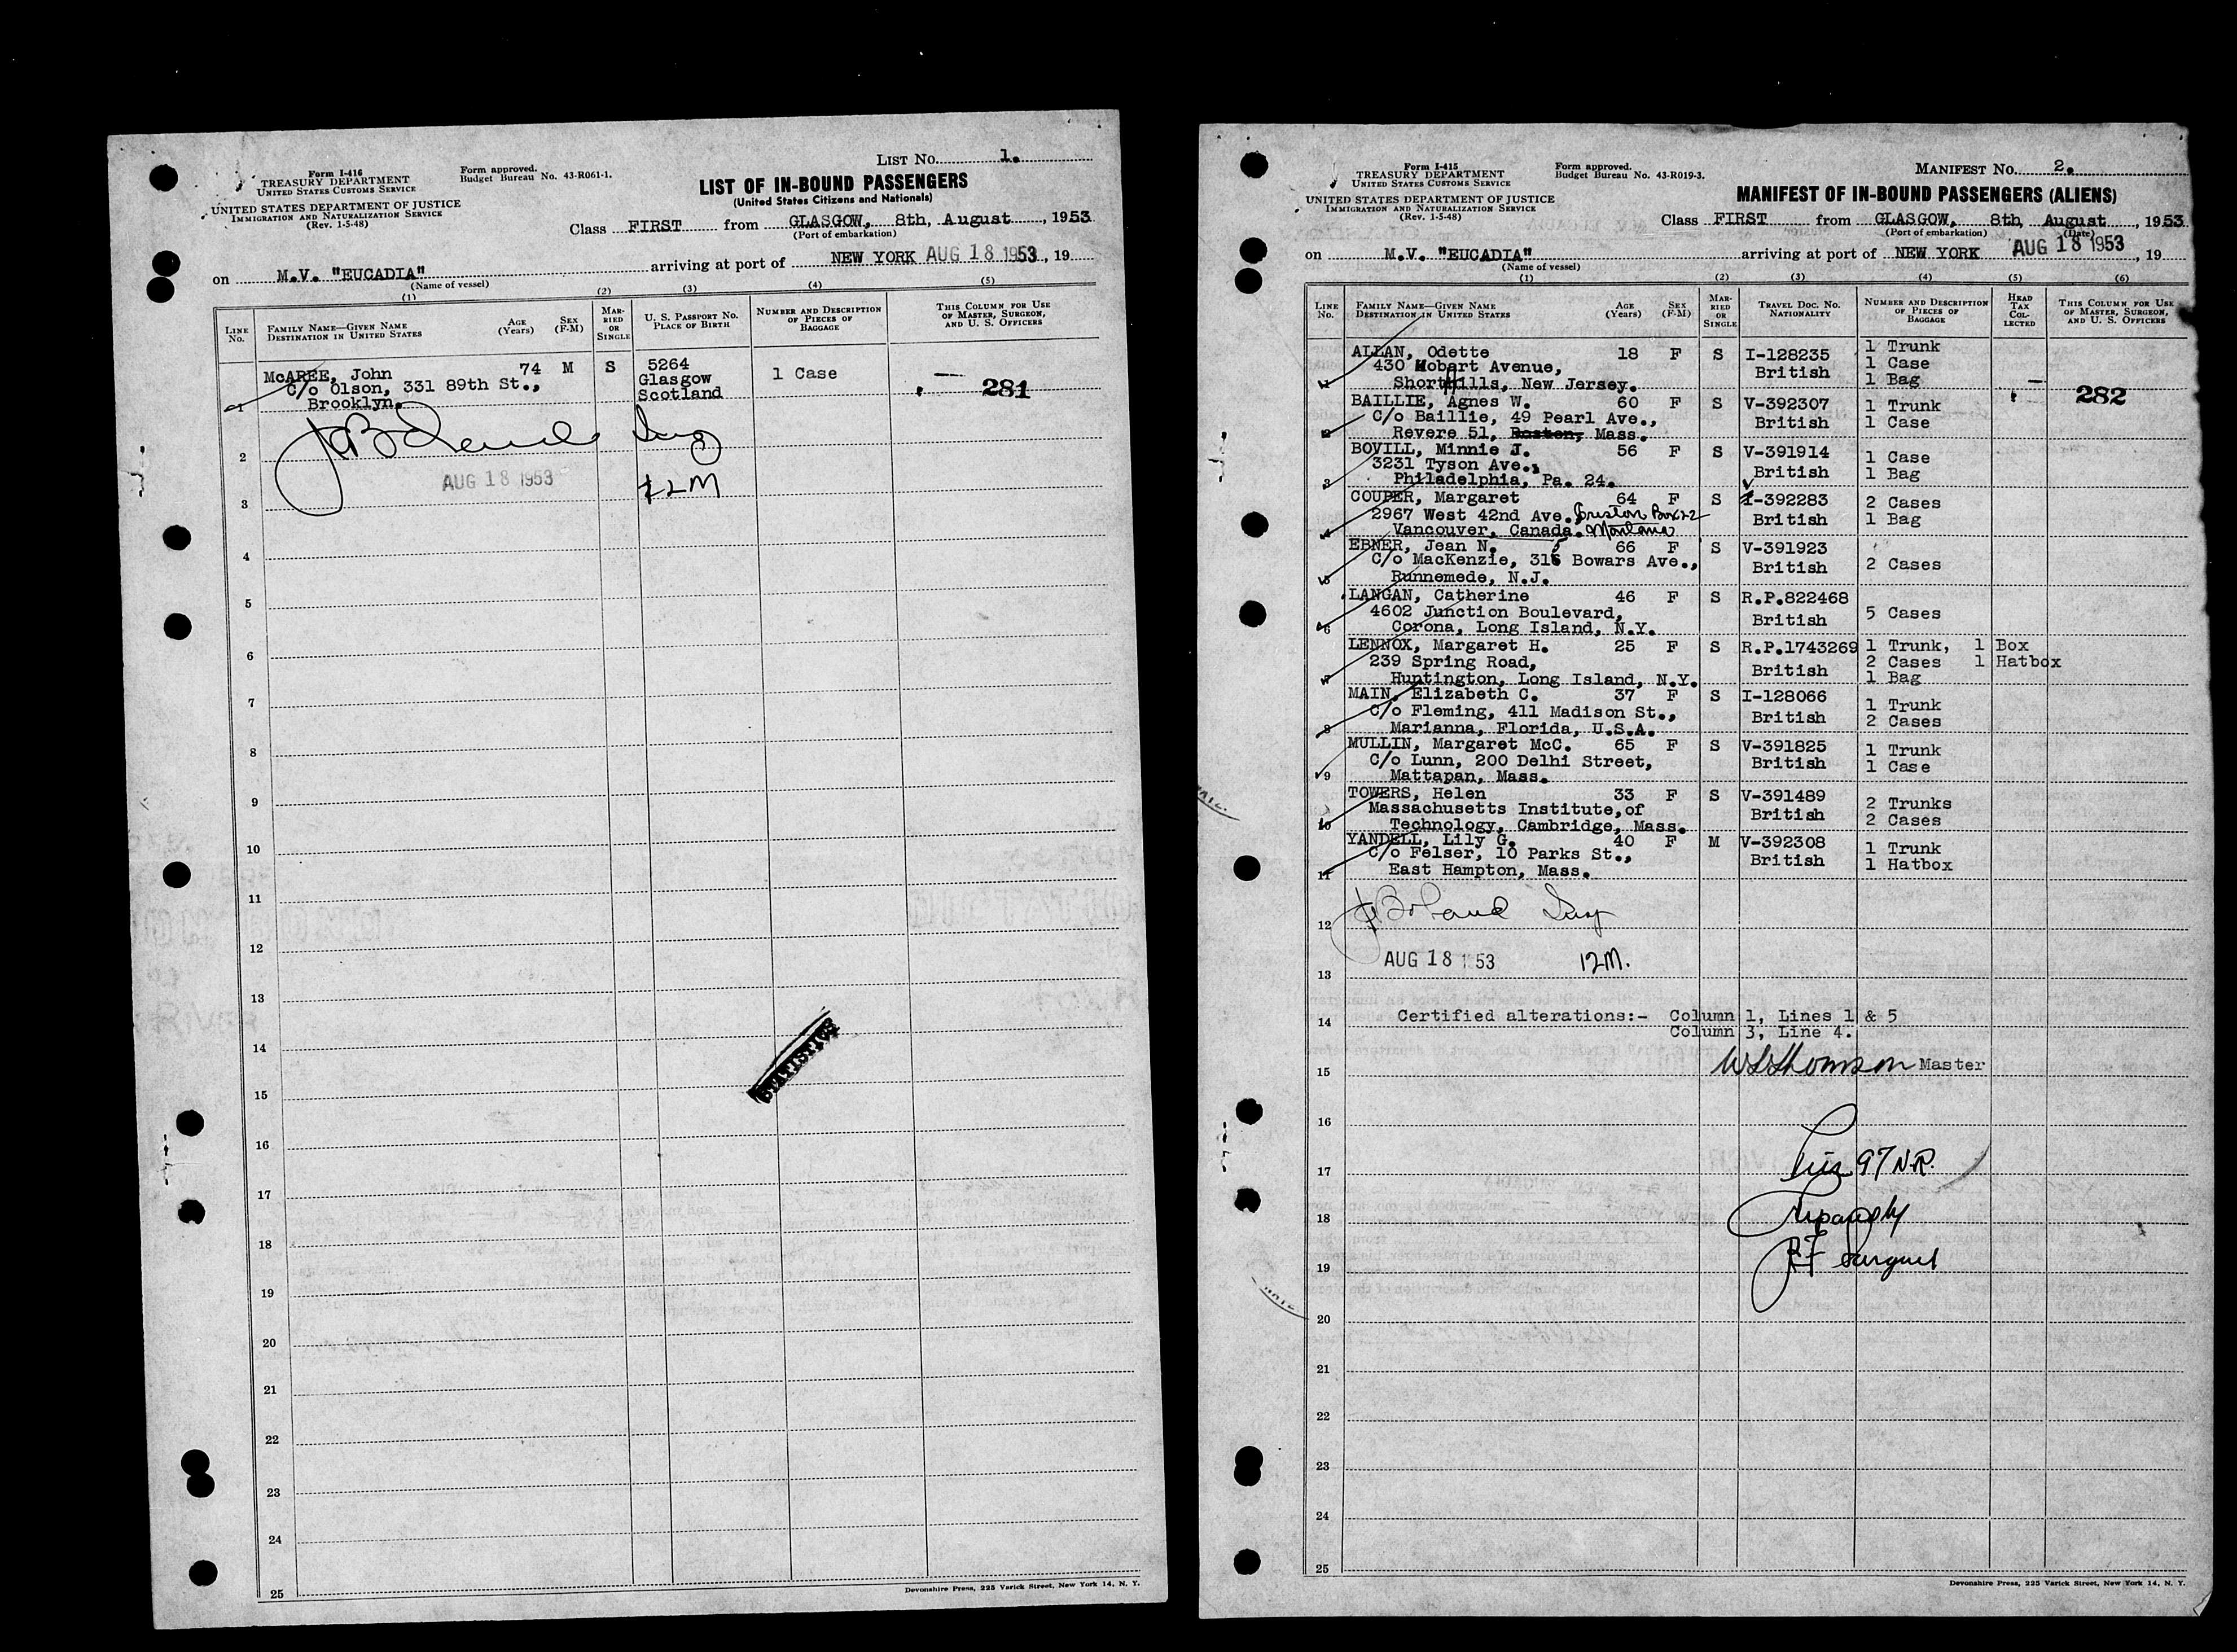 LIST No. 1.
Form I-416
TREASURY DEPARTMENT
UNITED STATES CUSTOMS SERVICE
Form approved.
Budget Bureau No. 43-R061-1.
UNITED STATES DEPARTMENT OF JUSTICE
IMMIGRATION AND NATURALIZATION SERVICE
(Rev. 1-5-48)
LIST OF IN-BOUND PASSENGERS
(United States Citizens and Nationals)
Class FIRST from GLASGOW, 8th, August, 1953
(Port of embarkation)
on M.V. "EUCADIA" arriving at port of NEW YORK AUG 18 1953, 19
(Name of vessel)
(1) (2) (3) (4) (5)
LINE No. FAMILY NAME—GIVEN NAME DESTINATION IN UNITED STATES AGE (Years) SEX (F-M) MARRIED OR SINGLE U. S. PASSPORT No. PLACE OF BIRTH NUMBER AND DESCRIPTION OF PIECES OF BAGGAGE THIS COLUMN FOR USE OF MASTER, SURGEON, AND U. S. OFFICERS
McAREE, John 74 M S 5264
C/o Olson, 331 89th St., Glasgow 1 Case 281
1 Brooklyn. Scotland
2
AUG 18 1953 12M
3
4
5
6
7
8
9
10
11
12
13
14
STATISTICS
15
16
17
18
19
20
21
22
23
24
25
Devonshire Press, 225 Varick Street, New York 14, N. Y.
MANIFEST No. 2.
Form I-415
TREASURY DEPARTMENT
UNITED STATES CUSTOMS SERVICE
Form approved.
Budget Bureau No. 43-R019-3.
UNITED STATES DEPARTMENT OF JUSTICE
IMMIGRATION AND NATURALIZATION SERVICE
(Rev. 1-5-48)
MANIFEST OF IN-BOUND PASSENGERS (ALIENS)
Class FIRST from GLASGOW, 8th, August, 1953
(Port of embarkation) (Date)
on M.V. "EUCADIA" arriving at port of NEW YORK AUG 18 1953, 19
(Name of vessel)
(1) (2) (3) (4) (5) (6)
LINE No. FAMILY NAME—GIVEN NAME DESTINATION IN UNITED STATES AGE (Years) SEX (F-M) MARRIED OR SINGLE TRAVEL DOC. No. NATIONALITY NUMBER AND DESCRIPTION OF PIECES OF BAGGAGE HEAD TAX COLLECTED THIS COLUMN FOR USE OF MASTER, SURGEON, AND U. S. OFFICERS
ALLAN, Odette 18 F S I-128235 1 Trunk
430 Hobart Avenue, British 1 Case
1 Short Hills, New Jersey. 1 Bag 282
BAILLIE, Agnes W. 60 F S V-392307 1 Trunk
C/o Baillie, 49 Pearl Ave., British 1 Case
2 Revere 51, Boston, Mass.
BOVILL, Minnie J. 56 F S V-391914 1 Case
3231 Tyson Ave., British 1 Bag
3 Philadelphia, Pa. 24.
COUPER, Margaret 64 F S V-392283 2 Cases
2967 West 42nd Ave. Box 22 British 1 Bag
4 Vancouver, Canada. Montana
EBNER, Jean N. 66 F S V-391923
C/o MacKenzie, 315 Bowars Ave., British 2 Cases
5 Runnemede, N.J.
LANGAN, Catherine 46 F S R.P.822468
4602 Junction Boulevard, British 5 Cases
6 Corona, Long Island, N.Y.
LENNOX, Margaret H. 25 F S R.P.1743269 1 Trunk, 1 Box
239 Spring Road, British 2 Cases 1 Hatbox
7 Huntington, Long Island, N.Y. 1 Bag
MAIN, Elizabeth C. 37 F S I-128066 1 Trunk
C/o Fleming, 411 Madison St., British 2 Cases
8 Marianna, Florida, U.S.A.
MULLIN, Margaret McC. 65 F S V-391825 1 Trunk
C/o Lunn, 200 Delhi Street, British 1 Case
9 Mattapan, Mass.
TOWERS, Helen 33 F S V-391489 2 Trunks
Massachusetts Institute, of British 2 Cases
10 Technology, Cambridge, Mass.
YANDELL, Lily G. 40 F M V-392308 1 Trunk
C/o Felser, 10 Parks St., British 1 Hatbox
11 East Hampton, Mass.
12
AUG 18 1953 12M.
13
14 Certified alterations:- Column 1, Lines 1 & 5
Column 3, Line 4.
15 Master
16
17
18
19
20
21
22
23
24
25
Devonshire Press, 225 Varick Street, New York 14, N. Y.